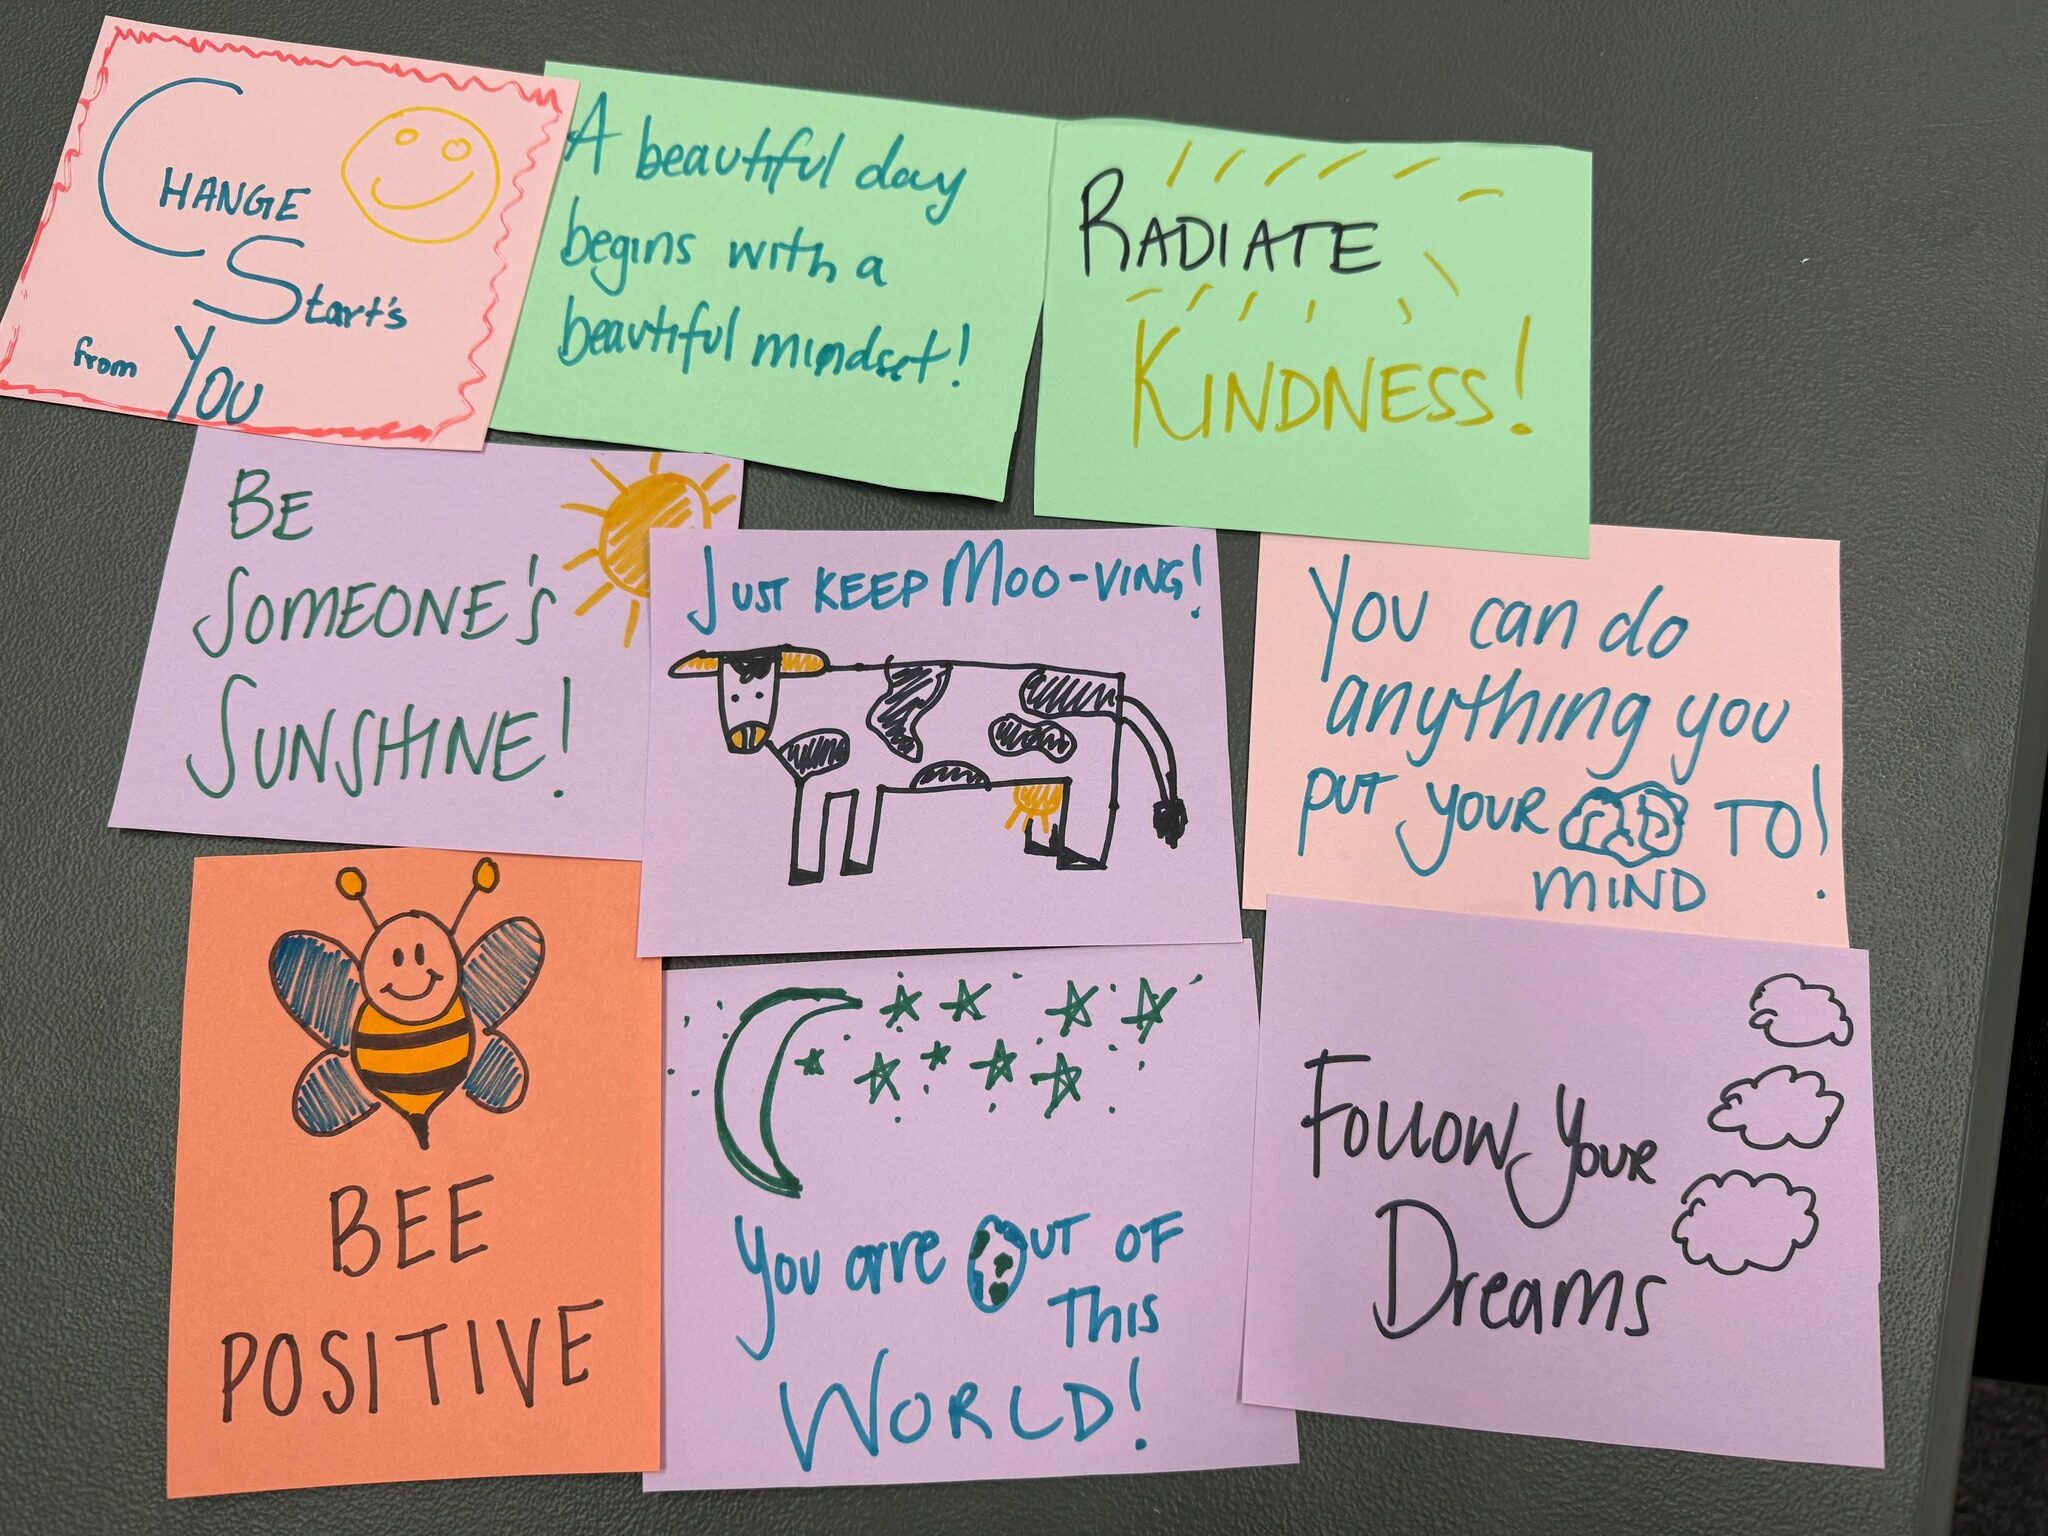 CHANGE
Start's
from You
A beautiful day
begins with a
beautiful mindset!
RADIATE
KINDNESS!
BE
SOMEONE'S
SUNSHINE!
JUST KEEP MOO-VING!
You can do
anything you
PUT YOUR TO!
MIND
BEE
POSITIVE
You are OUT OF
THIS
WORLD!
FOLLOW YOUR
Dreams